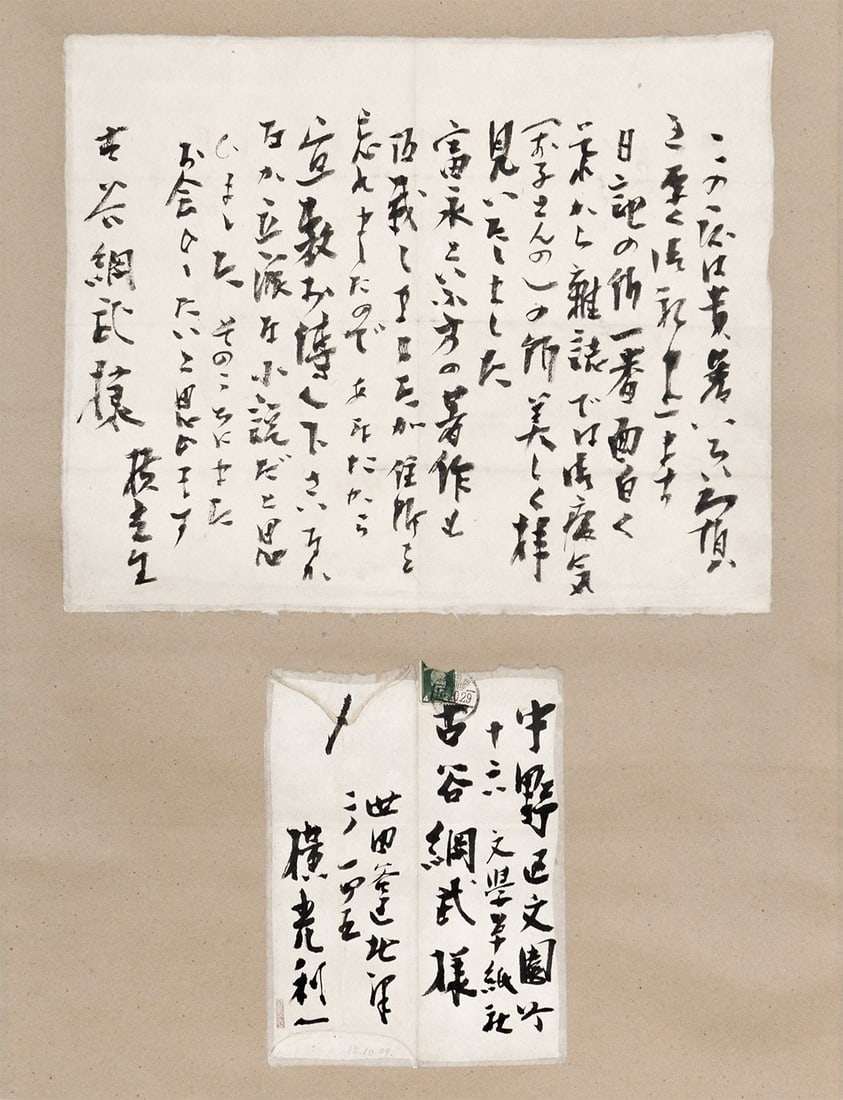 この頃は貴著いろいろ頂き
厚く御礼申上ます
日記の所一番面白く
それから雑誌では御病気
(お子さんの)の所美しく拝
見いたしました
富永といふ方の著作も
頂戴しましたが住所を
忘れましたのであなたから
宜敷お傳へ下さいなか
なか立派な小説だと思
ひました そのうちにまた
お会ひしたいと思ひます
横光生
古谷綱武様
中野区文園町
十六 文學草紙社
古谷綱武様
世田谷区北沢
二ノ一四五
横光利一
15.10.29.